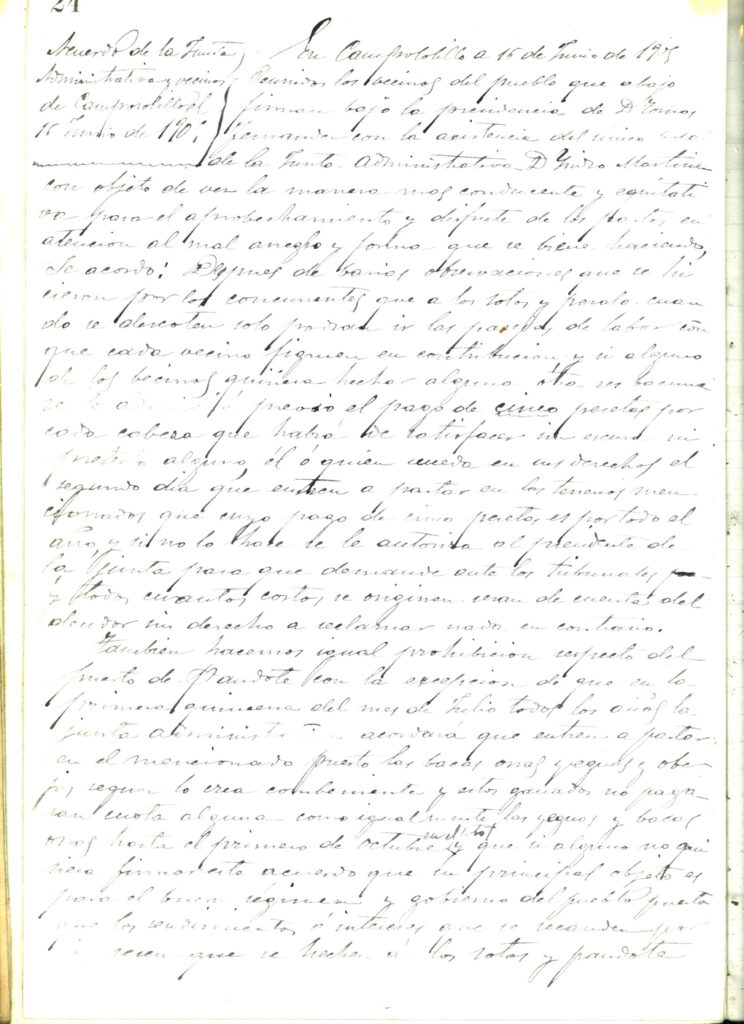 24
Acuerdo de la Junta
Administrativa y vecinos
de Camposolillo el
15 Junio de 190
En Camposolillo a 15 de Junio de 19
Reunidos los vecinos del pueblo que abajo
firman bajo la presidencia de D Tomas
Fernandez con la asistencia del único
de la Junta Administrativa D Isidro Martinez
con objeto de ver la manera mas conducente y equitati
va para el aprobechamiento y disfrute de los pastos, en
atencion al mal arreglo y forma que se biene haciendo,
Se acordo: Despues de barias observaciones que se hi
cieron por los concurrentes que a los sotos y cuan
do se descoten solo podran ir las parejas de labor con
que cada vecino figuren en contribucion, y si alguno
de los becinos quisiera hechar alguna otra res bacuna
se le previo el pago de cinco pesetas por
cada cabeza que habrá de satisfacer sin escusa ni
pretesto alguno, él ó quien suceda en sus derechos el
segundo dia que entren a pastar en los terrenos men
cionados que cuyo pago de cinco pesetas es por todo el
año, y si no lo hace se le autoriza al presidente de
la Junta para que demande ante los tribunales
y todos cuantos costos se originen seran de cuenta del
deudor sin derecho a reclamar nada en contrario.
Tambien hacemos igual prohibicion respecto del
puerto de con la excepcion de que en la
primera quincena del mes de Julio todos los años la
junta administ acordará que entren a pastar
en el mencionado puerto las bacas yeguas y obe
jas segun lo crea combeniente y estos ganados no paga
ran cuota alguna como igualmente las yeguas y bacas
hasta el primero de octubre y que si alguno no qui
siera firmar este acuerdo que su principal objeto es
para el buen régimen y gobierno del pueblo puesto
que los rendimientos ó intereses que se recauden por
reses que se hechen á los sotos y